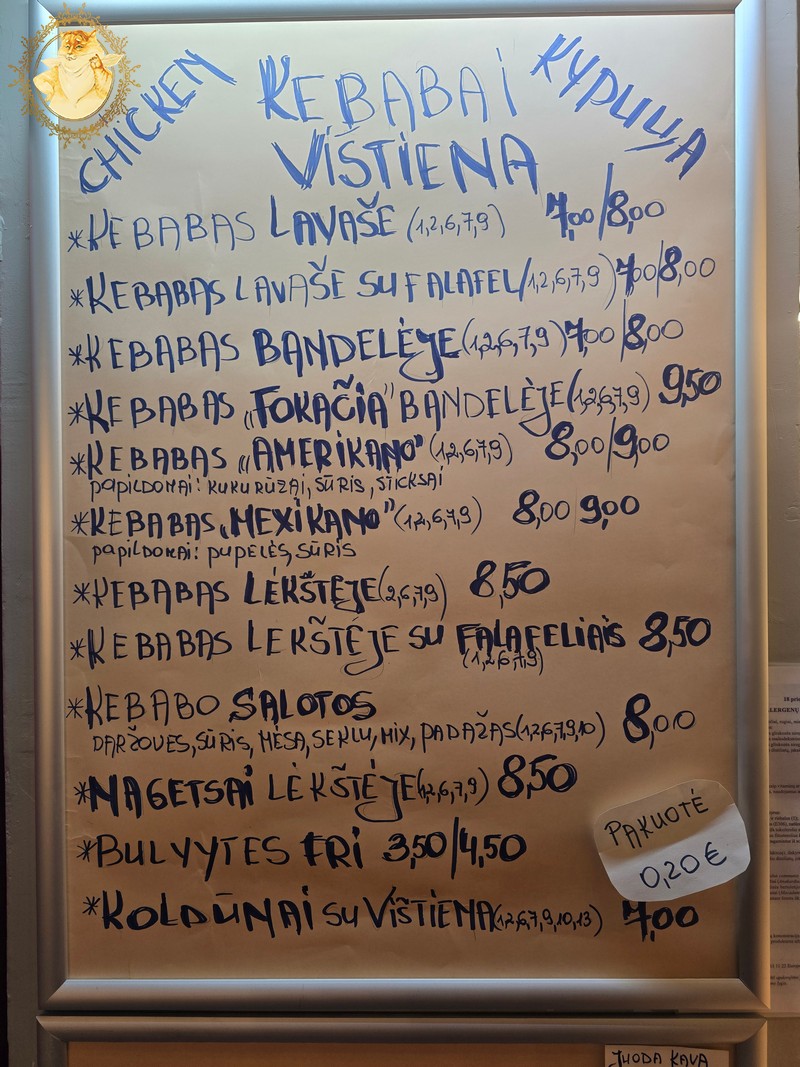 CHICKEN
KEBABAI
КУРИЦА
VIŠTIENA
*KEBABAS LAVAŠE (1,2,6,7,9) 7,00/8,00
*KEBABAS LAVAŠE SU FALAFEL/1,2,6,7,9) 7,00/8,00
*KEBABAS BANDELĖJE (1,2,6,7,9) 7,00/8,00
*KEBABAS „FOKAČIA" BANDELĖJE (1,2,6,7,9) 9,50
*KEBABAS „AMERIKANO" (1,2,6,7,9) 8,00/9,00
PAPILDOMAI: KUKURŪZAI, SŪRIS, STICKSAI
*KEBABAS „MEXIKANO" (1,2,6,7,9) 8,00 9,00
PAPILDOMAI: PUPELĖS, SŪRIS
*KEBABAS LĖKŠTĖJE (2,6,7,9) 8,50
*KEBABAS LEKŠTĖJE SU FALAFELIAIS 8,50
(1,2,6,7,9)
*KEBABO SALOTOS
DARŽOVES, SŪRIS, MĖSA, SEKLU, MIX, PADAŽAS (1,2,6,7,9,10) 8,00
*NAGETSAI LĖKŠTĖJE (1,2,6,7,9) 8,50
*BULVYTES FRI 3,50/4,50
PAKUOTĖ
0,20€
*KOLDŪNAI SU VIŠTIENA (1,2,6,7,9,10,13) 7,00
JUODA KAVA